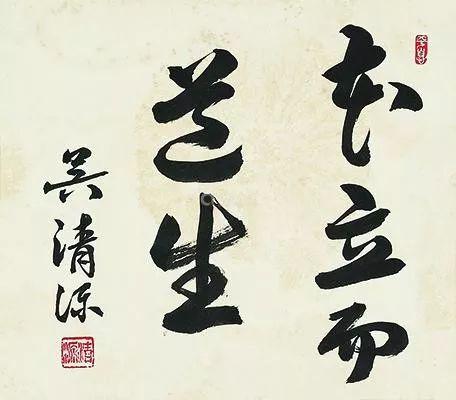 本立而
道生
吳清源
清源